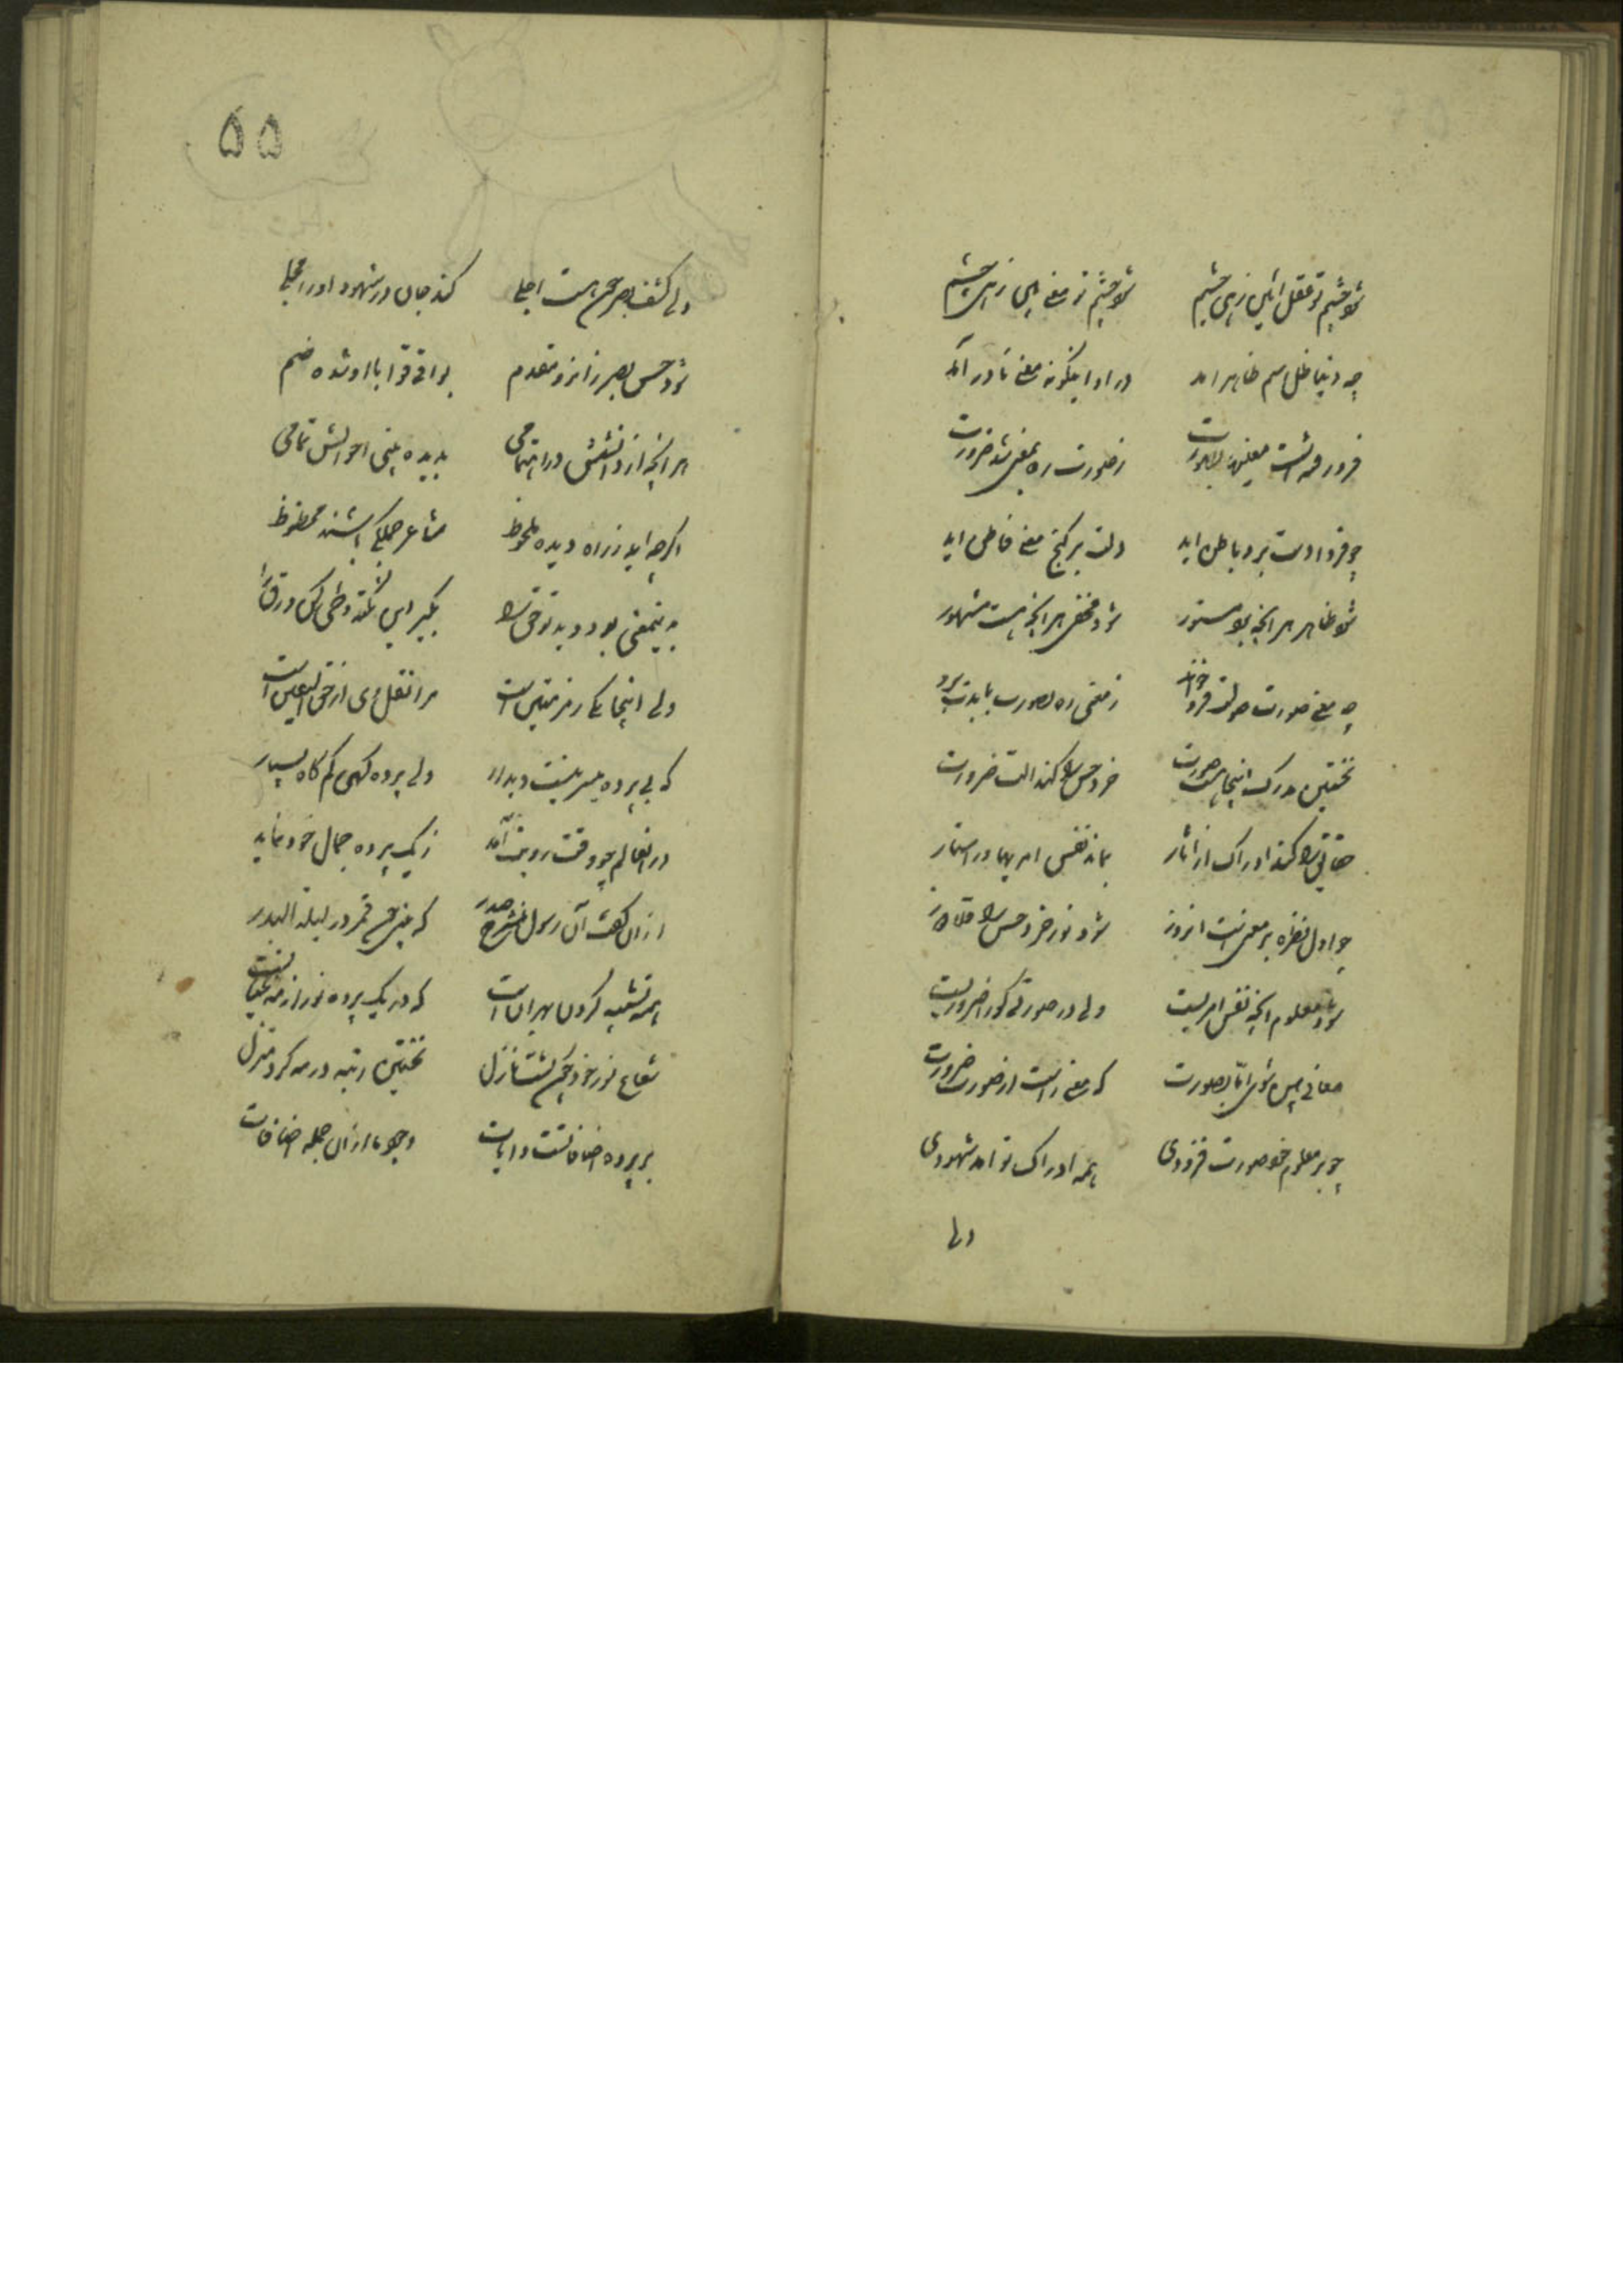 شود چشم تو عقل اینی زهی چشم شود چشم تو معنی بین زهی چشم
چه دنیا ظل اسم ظاهر امد در او اینگونه معنی نادر آمد
ز صورت ره بمعنی شد ضرورت
چو فردا دست برد باطن اید دلت بر کنج معنی فاطن اید
شود ظاهر هر انچه بود مستور شود مخفی هر انچه هست مشهور
چه معنی صورت صولت فرو خورد ز معنی ره بصورت بایدت برد
نخستین مدرک اینجا هست صورت خرد حس را کند الت ضرورت
حقایق را کند ادراک از اثار بماند نفس امریها در استار
چو اول نظره بر معنیست انروز شود نور خرد حس را
شود معلوم انچه نفس امریست ولی در صورتی کورا ضروریست
معانی بین شوی اما بصورت که معنی راست از صورت ضرورت
چو بر معلوم خود صورت فزودی همه ادراک تو امد شهودی
ولی
۵۵
ولی کشف بصر چون هست اجلی کند جان در شهود او را مجلی
شود حس بصر زانرو مقدم بواقی قوا با او شده ضم
هر انچه از دانشش در اهتمامی بدیده بینی احوالش تمامی
اگرچه اید از راه دیده ملحوظ مشاعر جملگی باشند محظوظ
بدینمعنی بود دید تو حق را بگیر این نکته و طی کن ورق را
ولی اینجا یکی رمز متین است مرا نقل وی از حق الیقین است
که بی پرده میسر نیست دیدار ولی پرده گهی کم گاه بسیار
در انعالم چو وقت رویت آمد ز یک پرده جمال خود نماید
ازان گفت آن رسول منشرح صدر که بینی همچو قمر در لیلة البدر
همه تشبیه کردن بهر ان است که در یک پرده نور از مه عیانست
شعاع نور خود چون گشت نازل نخستین رتبه در مه کرد منزل
بر پرده اضافتست و ایات وجود ما ازان جمله اضافات